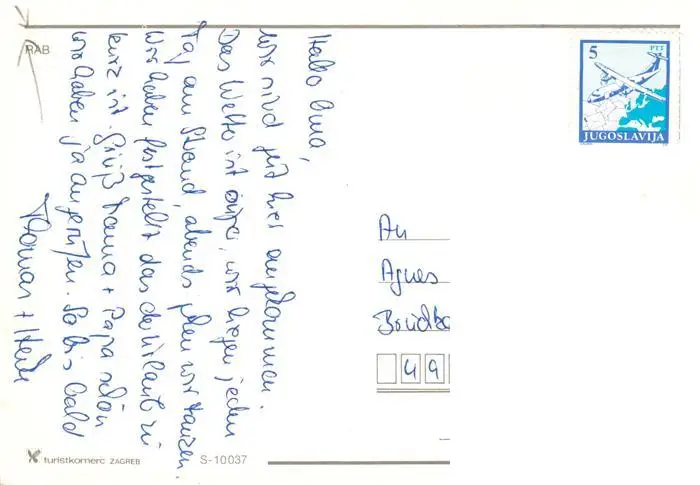 RAB
Hallo Oma,
wir sind gut hier angekommen.
Das Wetter ist super, wir liegen jeden
Tag am Strand, abends gehen wir tanzen.
Wir haben festgestellt das der Urlaub zu
kurz ist. Grüß Mama + Papa schön
wir haben ja angerufen. So bis bald
Thomas + Heike
5 PTT
JUGOSLAVIJA
An
Agnes
49
turistkomerc ZAGREB
S-10037